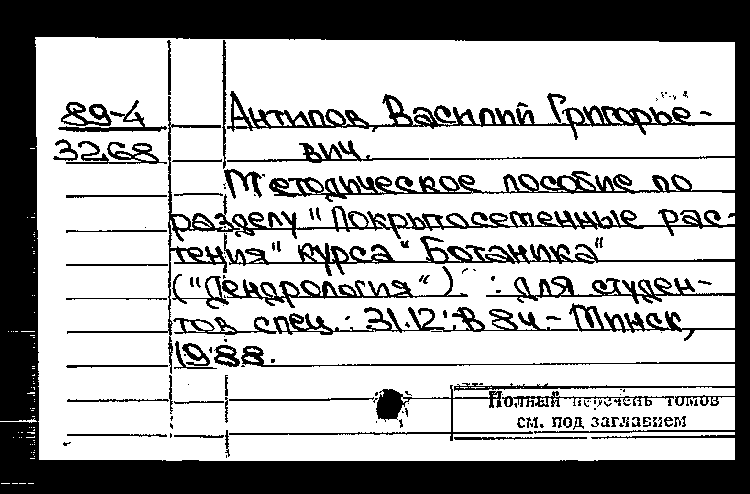 89-4 Антипов, Василий Григорье-
3268 вич.
Методическое пособие по
разделу "Покрытосеменные рас-
тения" курса "Ботаника"
("Дендрология") : для студен-
тов спец. : 31.12 : В 8 ч. - Минск,
1988.
Полный перечень томов
см. под заглавием